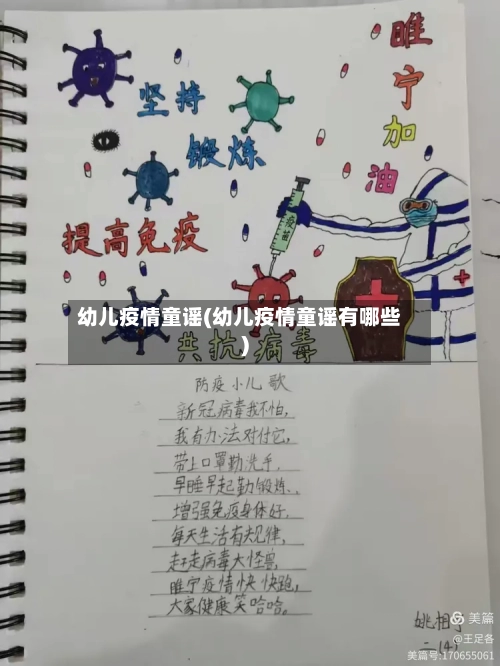 坚持
锻炼
睢宁加油
提高免疫
疫苗
幼儿疫情童谣(幼儿疫情童谣有哪些
)
共抗病毒
防疫小儿歌
新冠病毒我不怕,
我有办法对付它,
带上口罩勤洗手,
早睡早起勤锻炼,
增强免疫身体好,
每天生活有规律,
赶走病毒大怪兽,
睢宁疫情快快跑,
大家健康笑哈哈。
美篇
@王足各
美篇号:170655061